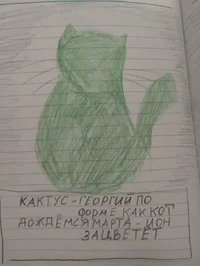 КАКТУС-ГЕОРГИЙ ПО
ФОРМЕ КАК КОТ
ДОЖДЁМСЯ МАРТА - И ОН
ЗАЦВЕТЁТ